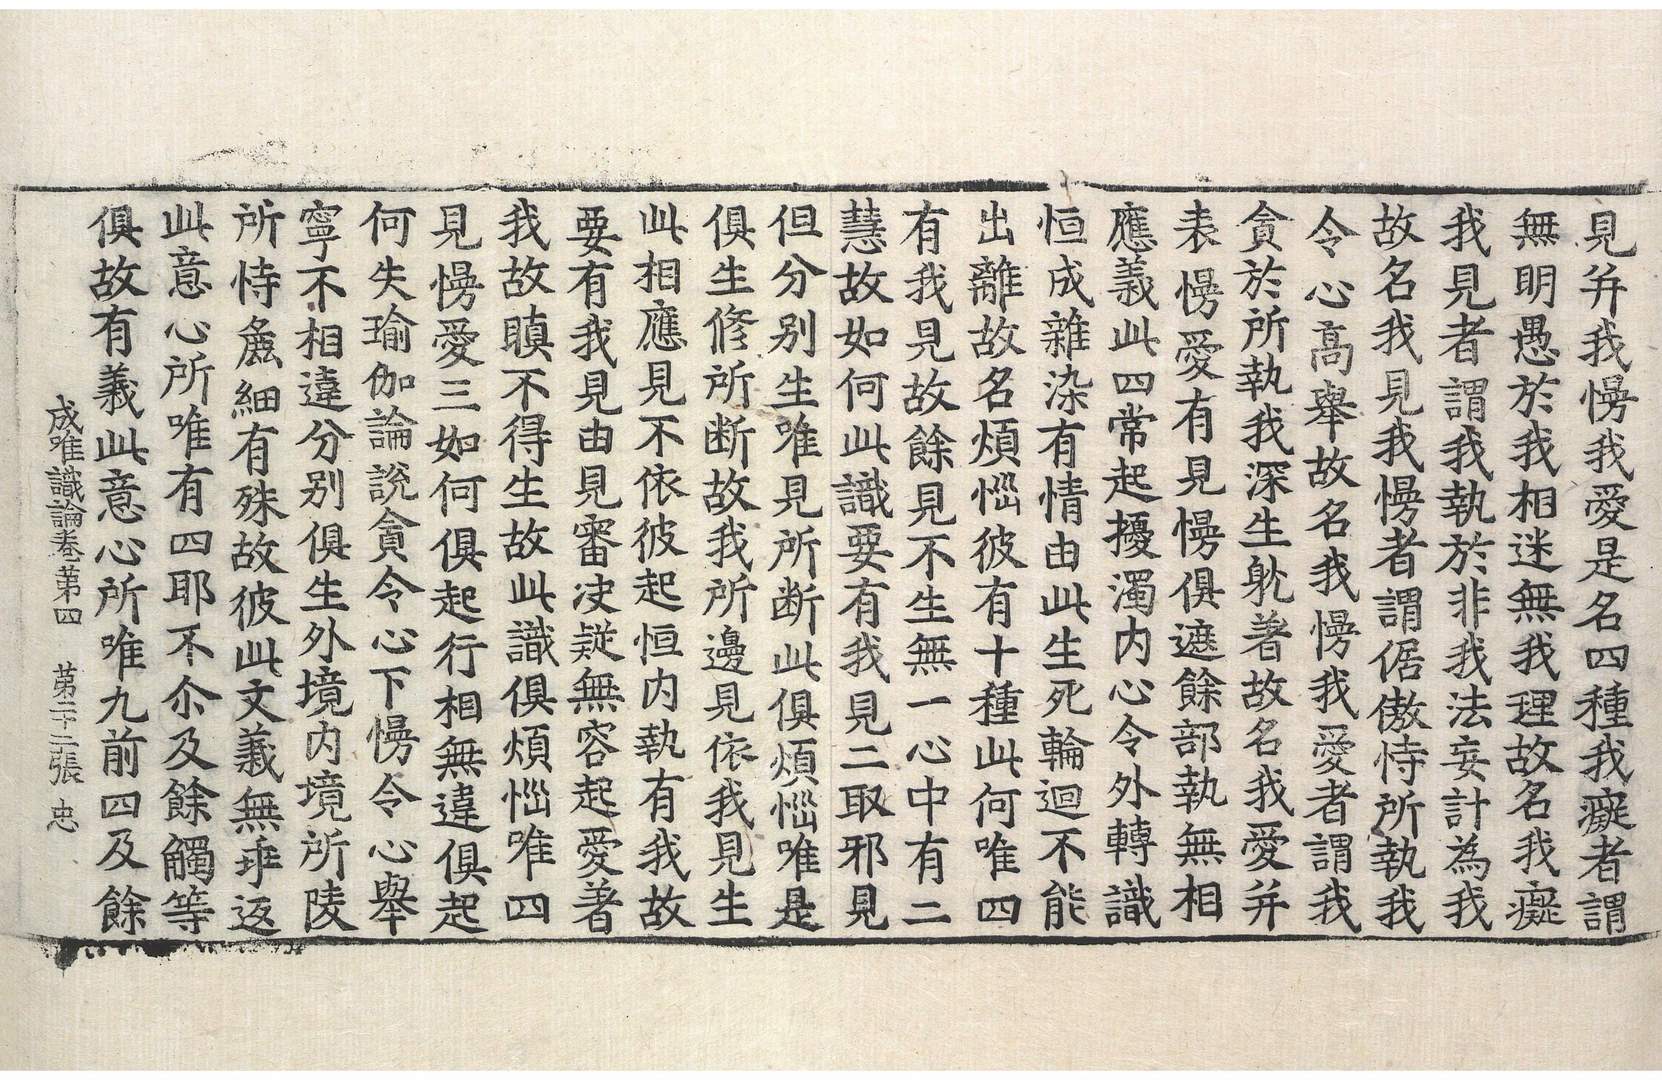 見并我慢我愛是名四種我癡者謂
無明愚於我相迷無我理故名我癡
我見者謂我執於非我法妄計為我
故名我見我慢者謂倨傲恃所執我
令心高舉故名我慢我愛者謂我
貪於所執我深生躭著故名我愛并
表慢愛有見慢俱遮餘部執無相
應義此四常起擾濁內心令外轉識
恒成雜染有情由此生死輪迴不能
出離故名煩惱彼有十種此何唯四
有我見故餘見不生無一心中有二
慧故如何此識要有我見二取邪見
但分別生唯見所断此俱煩惱唯是
俱生修所断故我所邊見依我見生
此相應見不依彼起恒內執有我故
要有我見由見審决疑無容起愛著
我故瞋不得生故此識俱煩惱唯四
見慢愛三如何俱起行相無違俱起
何失瑜伽論說貪令心下慢令心舉
寧不相違分別俱生外境內境所陵
所恃麁細有殊故彼此文義無乖返
此意心所唯有四耶不尒及餘觸等
俱故有義此意心所唯九前四及餘
成唯識論卷苐四 苐二十二張 忠